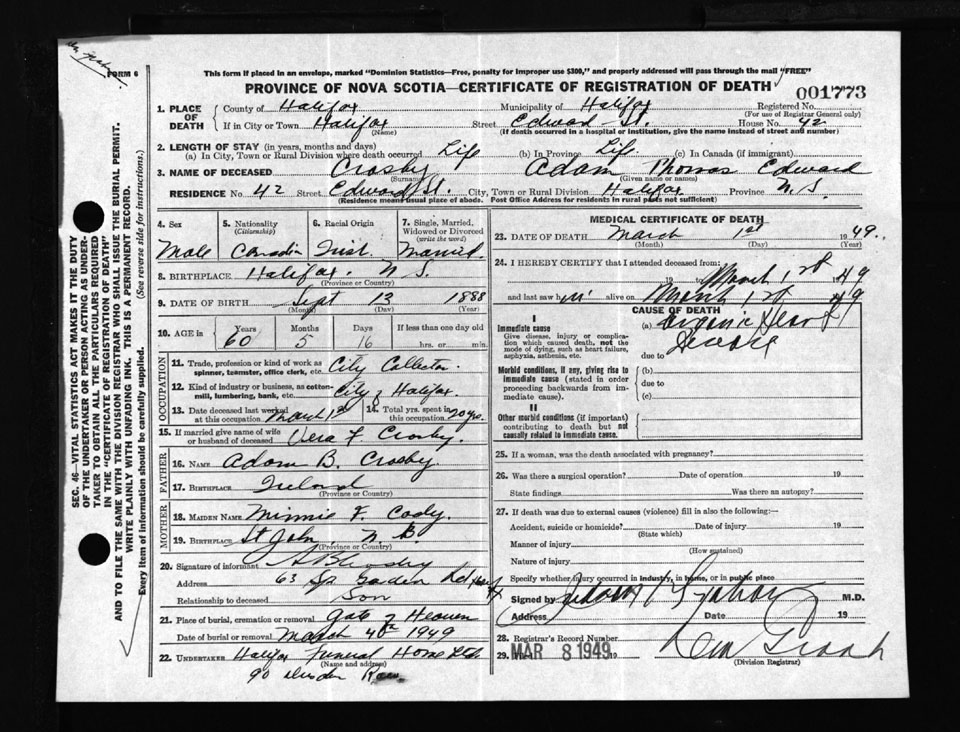 FORM 6
This form if placed in an envelope, marked "Dominion Statistics—Free, penalty for improper use $300," and properly addressed will pass through the mail "FREE"
PROVINCE OF NOVA SCOTIA—CERTIFICATE OF REGISTRATION OF DEATH
001773
SEC. 46—VITAL STATISTICS ACT MAKES IT THE DUTY
OF THE UNDERTAKER OR PERSON ACTING AS UNDER-
TAKER TO OBTAIN ALL THE PARTICULARS REQUIRED
IN THE "CERTIFICATE OF REGISTRATION OF DEATH"
AND TO FILE THE SAME WITH THE DIVISION REGISTRAR WHO SHALL ISSUE THE BURIAL PERMIT.
WRITE PLAINLY WITH UNFADING INK. THIS IS A PERMANENT RECORD.
Every item of information should be carefully supplied. (See reverse side for instructions.)
1. PLACE OF DEATH County of Halifax Municipality of Halifax Registered No.
(For use of Registrar General only)
If in City or Town Halifax Street Edward St. House No. 42
(Name) (If death occurred in a hospital or institution, give the name instead of street and number)
2. LENGTH OF STAY (in years, months and days)
(a) In City, Town or Rural Division where death occurred Life (b) In Province Life (c) In Canada (if immigrant)
3. NAME OF DECEASED Crosby Adam Thomas Edward
(Surname) (Given name or names)
RESIDENCE No. 42 Street Edward St. City, Town or Rural Division Halifax Province N.S
(Residence means usual place of abode. Post Office Address for residents in rural parts not sufficient)
4. Sex 5. Nationality (Citizenship) 6. Racial Origin 7. Single, Married, Widowed or Divorced (write the word)
Male Canadian Irish Married
8. BIRTHPLACE Halifax. N S.
(Province or Country)
9. DATE OF BIRTH Sept 13 1888
(Month) (Day) (Year)
10. AGE in Years Months Days If less than one day old
60 5 16 hrs. or min.
OCCUPATION
11. Trade, profession or kind of work as spinner, teamster, office clerk, etc. City Collector.
12. Kind of industry or business, as cotton-mill, lumbering, bank, etc. City of Halifax.
13. Date deceased last worked at this occupation March 1st 14. Total yrs. spent in this occupation 20 yrs.
15. If married give name of wife or husband of deceased Vera F Crosby.
FATHER
16. NAME Adam B. Crosby.
17. BIRTHPLACE Ireland
(Province or Country)
MOTHER
18. MAIDEN NAME Minnie F. Cody.
19. BIRTHPLACE St John N. B.
(Province or Country)
20. Signature of informant A B Crosby
Address 63 Sp Garden Rd
Relationship to deceased Son
21. Place of burial, cremation or removal Gate of Heaven
Date of burial or removal March 4th 1949
22. UNDERTAKER Halifax Funeral Home Ltd
(Name and address)
90
MEDICAL CERTIFICATE OF DEATH
23. DATE OF DEATH March 1st 1949.
(Month) (Day) (Year)
24. I HEREBY CERTIFY that I attended deceased from:
19 March 1st 49
and last saw him alive on March 1st 49
CAUSE OF DEATH
I
Immediate cause (a) Organic Heart
Give disease, injury or complication which caused death, not the mode of dying, such as heart failure, asphyxia, asthesia, etc. Disease
due to
Morbid conditions, if any, giving rise to immediate cause (stated in order proceeding backwards from immediate cause). (b)
due to
(c)
II
Other morbid conditions (if important) contributing to death but not causally related to immediate cause.
25. If a woman, was the death associated with pregnancy?
26. Was there a surgical operation? Date of operation 19
State findings Was there an autopsy?
27. If death was due to external causes (violence) fill in also the following:—
Accident, suicide or homicide? Date of injury 19
(State which)
Manner of injury
(How sustained)
Nature of injury
Specify whether injury occurred in industry, in home, or in public place
Signed by M.D.
Address Date 19
28. Registrar's Record Number
29. MAR 8 1949 19
(Division Registrar)